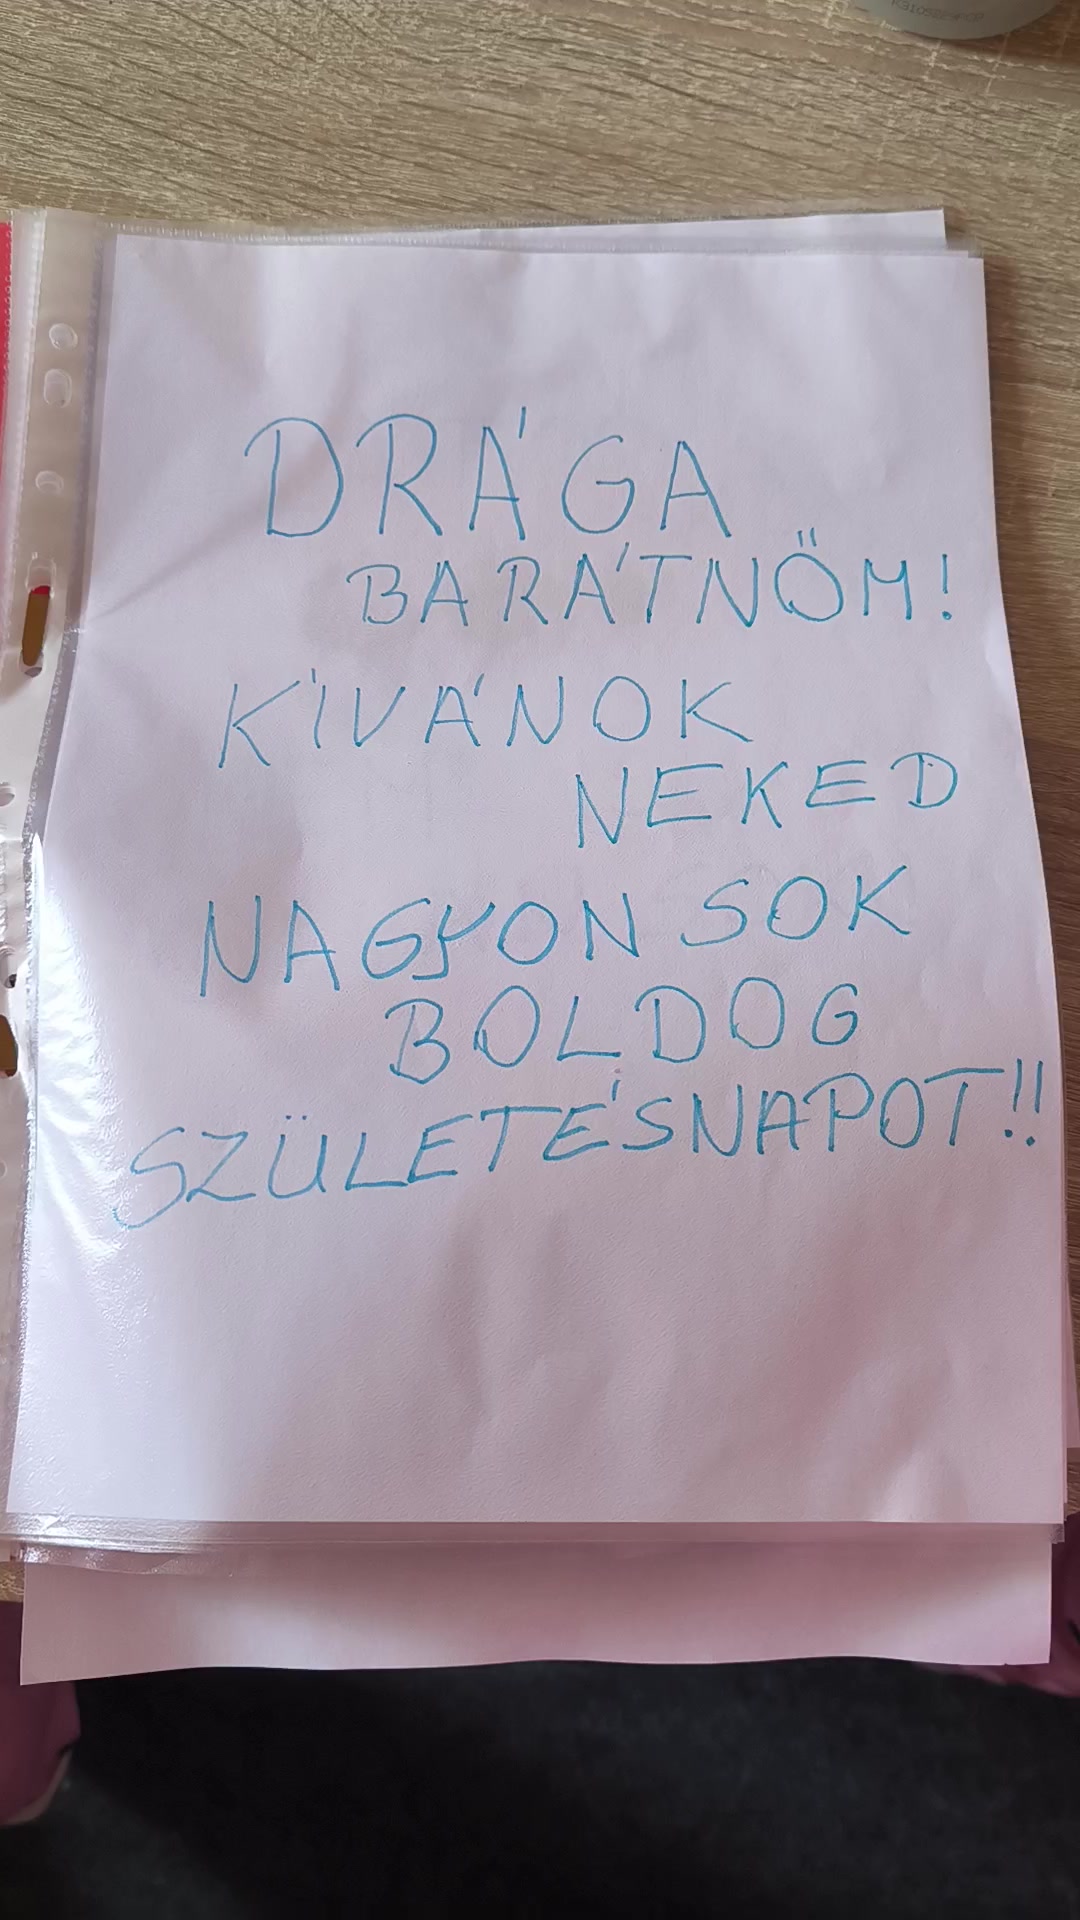 DRÁGA
BARÁTNŐM!
KÍVÁNOK
NEKED
NAGYON SOK
BOLDOG
SZÜLETÉSNAPOT!!